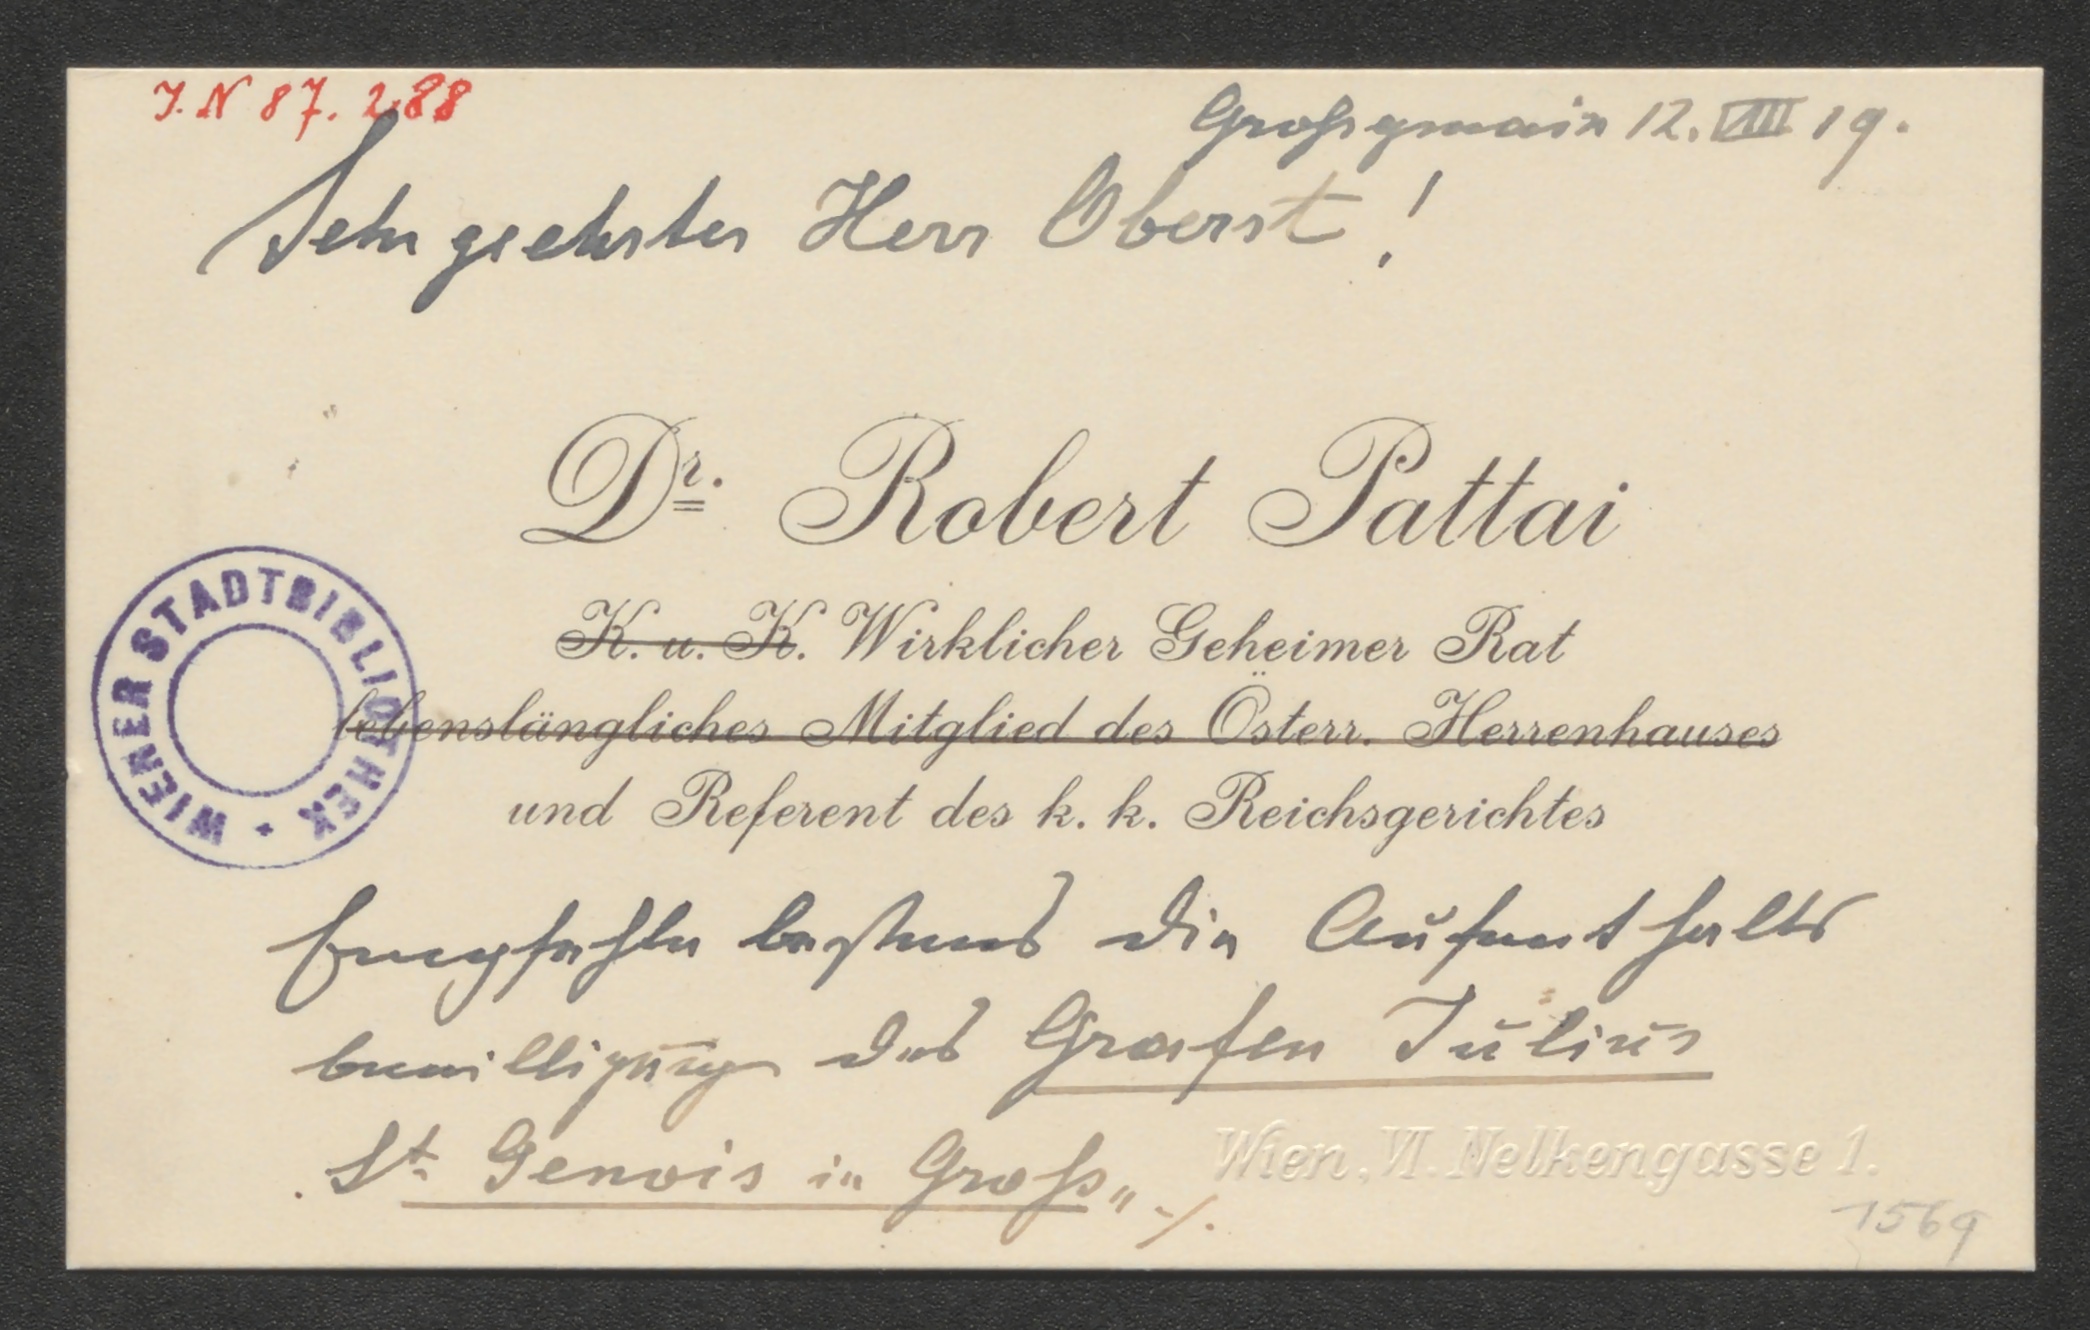 J. N 87. 288
Großgmain 12. VIII 19.
Sehr geehrter Herr Oberst!
Dr. Robert Pattai
K. u. K. Wirklicher Geheimer Rat
lebenslängliches Mitglied des Österr. Herrenhauses
und Referent des k. k. Reichsgerichtes
WIENER STADTBIBLIOTHEK
Empfehle bestens die Aufenthalts
bewilligung des Grafen Julius
St. Genois in Groß„ ./.
Wien, VI. Nelkengasse 1.
1569